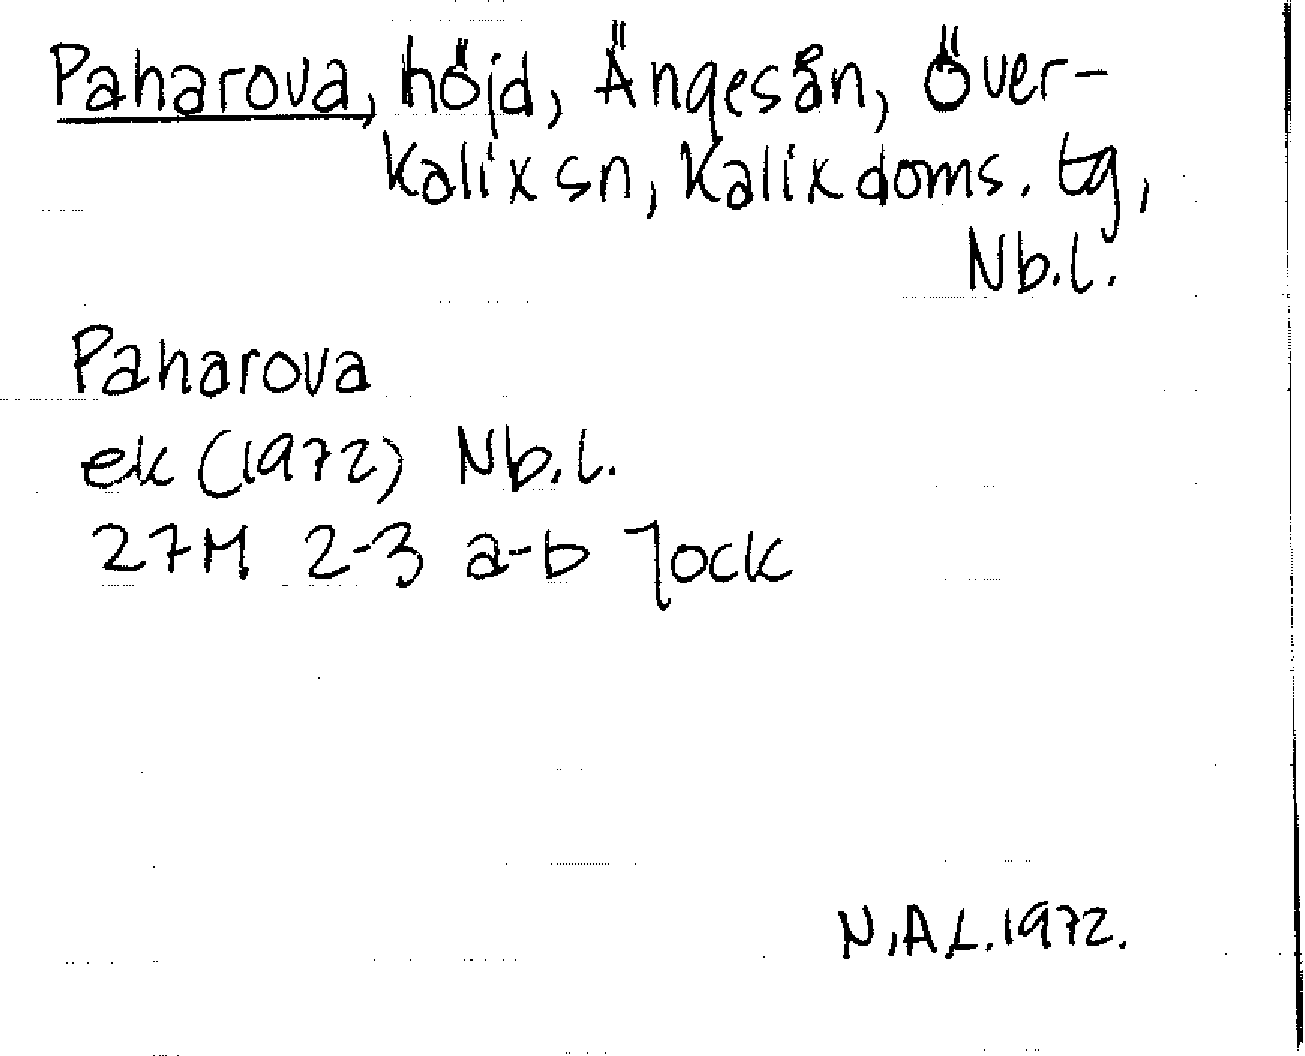 Paharova, höjd, Ängesån, Över-
Kalix sn, Kalix doms. tg,
Nb.l.
Paharova
ek (1972) Nb.l.
27M 2-3 a-b Jock
N.A.L. 1972.